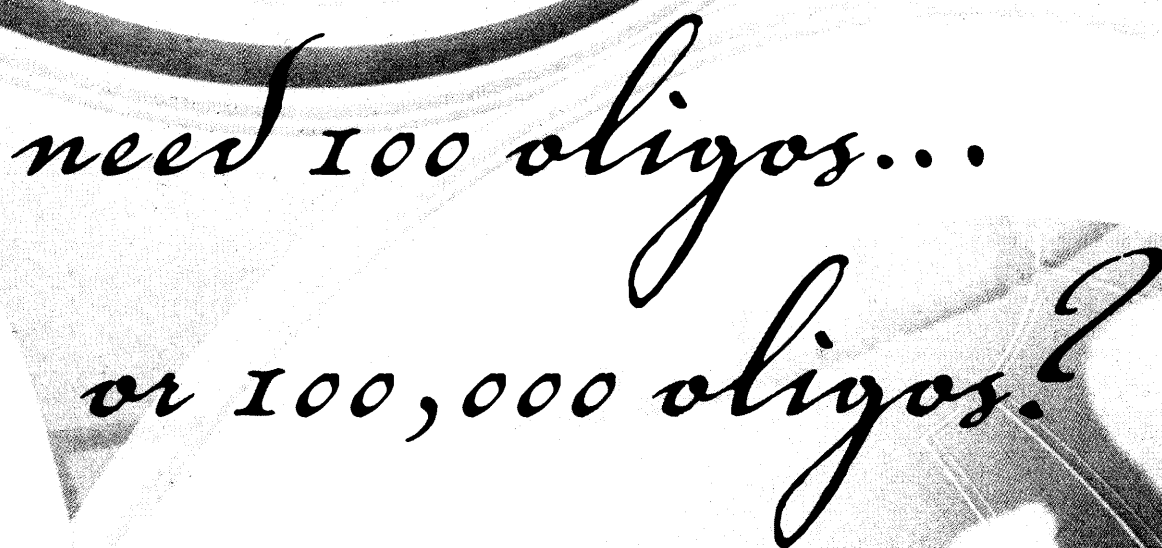 need 100 oligos...
or 100,000 oligos?